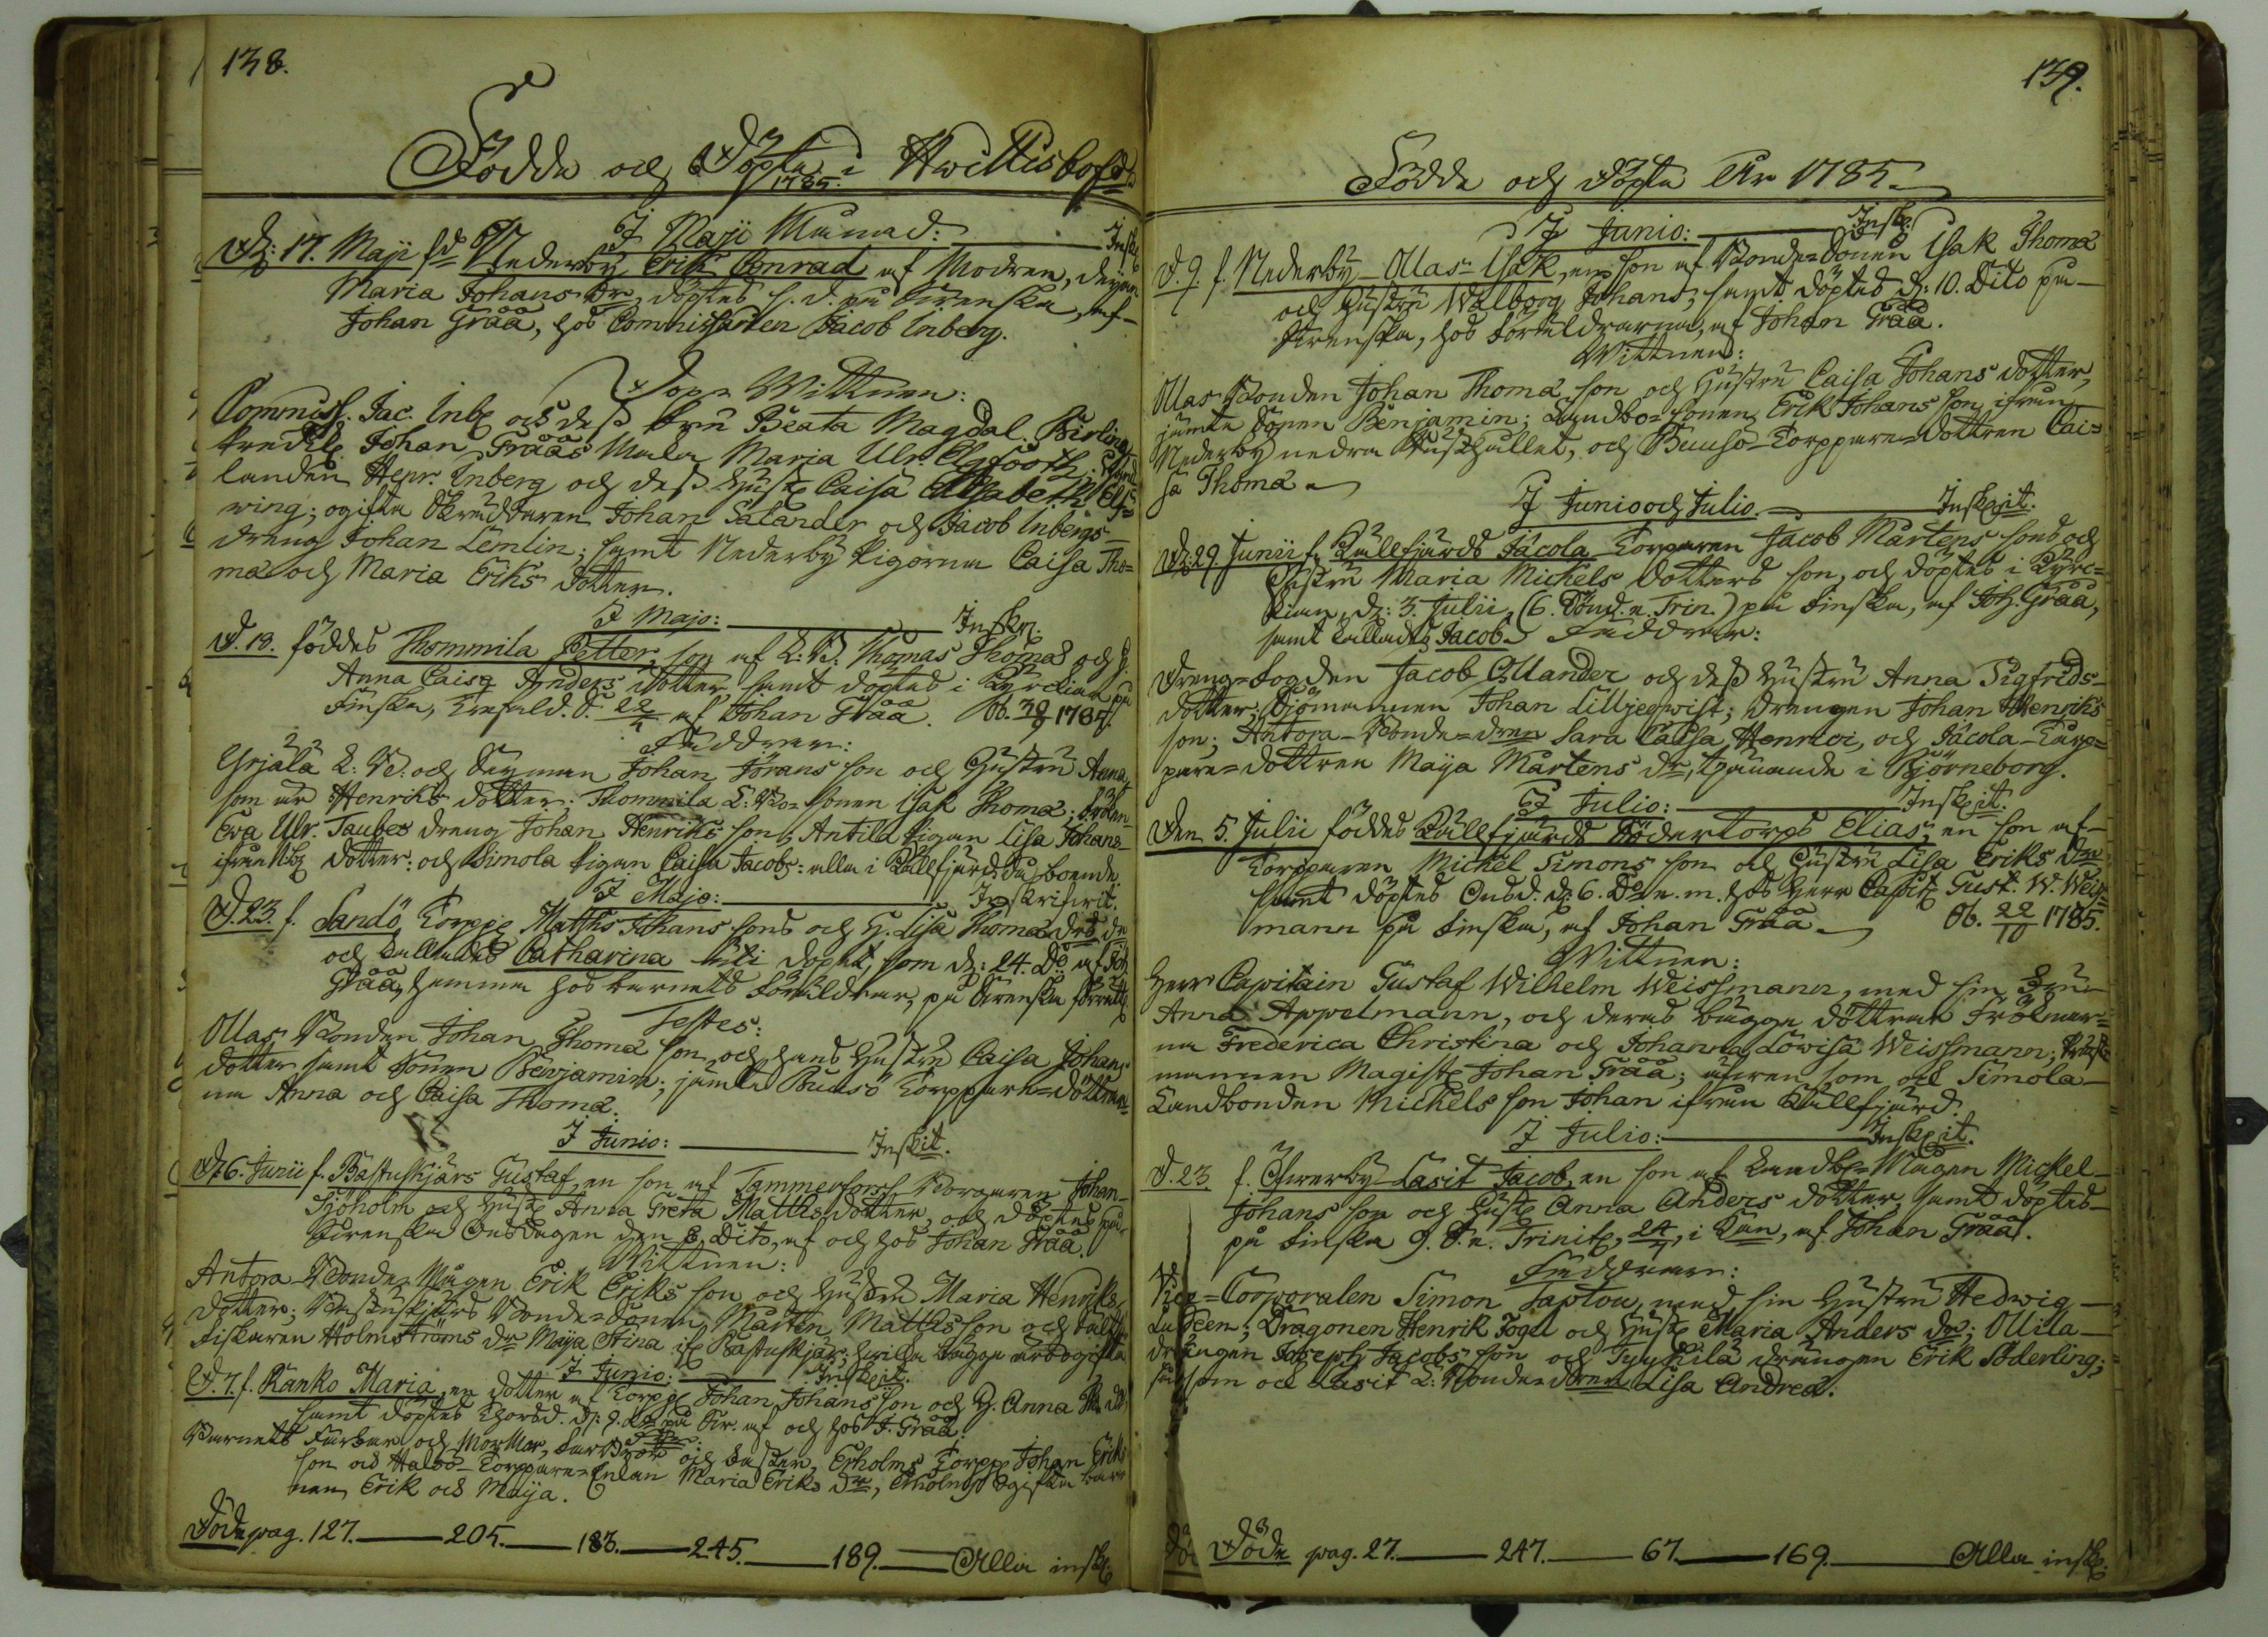 138.
Födde och Döpte i Hwittisbofd
1785.
I Maji Månad: Inskr
D: 17. Maji fd Nederby Erik Conrad af Modren, Deyan
Maria Johans Dr, döptes s. d. på Swenska, af
Johan Gråå, hos Commissarien Jacob Inberg.
Dop-Wittnen:
Commiss. Jac. Inbg och dess Fru Beata Magdal. Birling
Johan Gråås Maka Maria Ulr. Elgfooth;
landen Henr. Inberg och dess Hustr Caisa Elisabeth Elf=
wing; ogifte Skräddaren Johan Salander och Jacob Inbergs
dreng Johan Lemlin; samt Nederby pigorna Caisa Tho=
mæ och Maria Eriks dotter.
I Majo: Inskr.
D. 18. föddes Thommila Petter, son af L: B: Thomas Thomæ och H.
Anna Caisa Anders dotter, samt döptes i Kyrckian på
Finska, d. 22/5 af Johan Gråå. Ob. 1785.
Faddrar:
Yrjälä L: B: och Johan Jörans son och Hustru Anna,
som är Henriks dotter: Thommila L: Bo=sonen Isak Thomæ;
Ewa Ulr. Taubes dreng Johan Henriks son, Antila pigan Lisa Johans
dotter: och Simola pigan Caisa Jacobs: alla i Källfjärd boende.
I Majo: Inskrifwit.
D. 23. f. Sandö Torpp Matths Johans sons och H. Lisa Thomæ drs dr
och kallades Catharina uti dopet, som d: 24. Do af Joh.
Gråå, hemma hos barnets Föräldrar, på Swenska förrätt
Testes:
Ollas Bonden Johan Thomæ son, och hans Hustru Caisa Johans
dotter, samt sonen Benjamin; jämte Buusö Torppare=döttrar=
na Anna och Caisa Thomæ.
I Junio: Inskr:it.
D. 6. Junii f. Bastuskjärs Gustaf, en son af Tammerfors Borgaren Johan
Sjöholm och Hustr Anna Greta Matths dotter, och döptes på
Swenska Onsdagen den 8. Dito, af och hos Johan Gråå.
Wittnen:
Antora Bonde=Mågen Erik Eriks son och Hustru Maria Henriks
dotter; Bastuskjärs Bonde=Sonen Mårten Matths son och
Fiskaren Holmströms Dr Maja Stina Bastuskjär; hwilka bägge äro ogifta
I Junio: Inskr:it.
D. 7. f. Kanko Maria, en dotter af Torpp Johan Johans son och H. Anna
samt döptes Thorsd. d: 9. Do på Sw. af och hos J. Gråå.
Barnets Farfar och MorMor, och Faster, Erholms Torpp Johan Eriks
son och Halsö=Torppare=Enkan Maria Eriks Dr, Erholms ogifta barn
nen Erik och Maija.
Döde pag. 127. 205. 183. 245. 189. Alla inskr
139.
Födde och Döpte År 1785.
I Junio: Inskr:
D. 9. f. Nederby=Ollas=Isak, en son af Bonde=Sonen Isak Thomæ
och Hustru Walborg Johans, samt döptes d: 10. Dito på
Swenska, hos Föräldrarna, af Johan Gråå.
Wittnen:
Ollas Bonden Johan Thomæ son och Hustru Caisa Johans dotter,
jämte Sonen Benjamin; Landbo=sonen Erik Johans son ifrån
Nederby nedra Rusthållet, och Buusö=Torppare=dottren Cai=
sa Thomæ
I Junio och Julio. Inskr:it.
D: 29 Junii f. Källfjärds Jäcola Torparen Jacob Mårtens sons och
Hustru Maria Mickels dotters son, och döptes i Kyrc=
kian d: 3. Julii, (6. Sönd. e. Trin.) på Finska, af Joh. Gråå,
samt kallades Jacob. Faddrar:
Dreng=Fogden Jacob Ollander och dess Hustru Anna Sigfrids
dotter; Sjömannen Johan Lilljeqwist; drengen Johan Henriks
son; Antora=Bonde=dren Sara Caisa Henrici, och Jäcola=Torp=
pare=dottren Maija Mårtens dr, tjenande i Björneborg.
I Julio: Inskr:it.
Den 5. Julii föddes Källfjärds Södertorps Elias, en son af
Torpparen Michel Simons son och Hustru Lisa Eriks Dr
samt döptes Onsd. d: 6. Do e. m. hos Herr Capit Gust. W. Weiss=
mann på Finska, af Johan Gråå. Ob. 22/10 1785.
Wittnen:
Herr Capitain Gustaf Wilhelm Weissmann, med sin Fru
Anna Appelmann, och deras bägge döttrar Frölnar=
na Frederica Christina och Johanna Lowisa Weissmann;
mannen Magistr Johan Gråå; äfwen som och Simola
Landbonden Mickels son Johan ifrån Källfjärd.
I Julio: Inskr:it.
D. 23 f. Öfwerby Lasit Jacob, en son af Landb=Mågen Mickel
Johans son och Hustr Anna Anders dotter, samt döptes
på Finska 9. S. e. Trinit, 24/7, i af Johan Gråå.
Faddrare:
Vice=Corporalen Simon Japtou, med sin Hustru Hedwig
Ladeen; Dragonen Henrik Fogel och Hustr Maria Anders dr; Ollila
drängen Joseph Jacobs son och Tyykilä drängen Erik Söderling;
så som och Lasit L: Bonde=dren Lisa Andreæ.
Döde pag. 27. 247. 67. 169. Alla inskr.